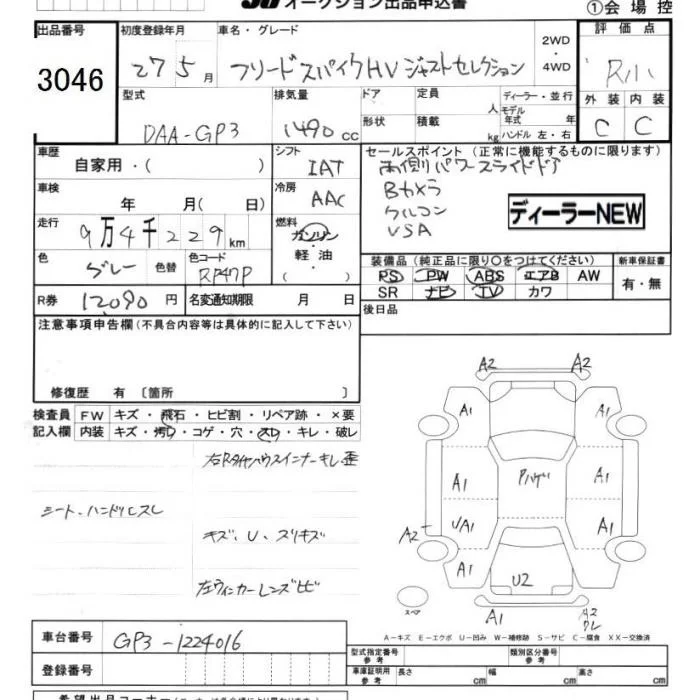 オークション出品申込書
①会場控
出品番号
3046
初度登録年月
27 5月
車名・グレード
フリードスパイクHV ジャストセレクション
2WD
・
4WD
評価点
外装 内装
C C
型式
DAA-GP3
排気量
1490 cc
ドア
形状
定員 人
積載 kg
ディーラー・並行
モデル
年式 年
ハンドル 左・右
車歴
自家用・( )
シフト
IAT
セールスポイント (正常に機能するものに限ります)
両側パワースライドドア
Bカメラ
クルコン
VSA
ディーラーNEW
車検
年 月(日)
冷房
AAC
走行
9万4千229km
燃料
ガソリン
軽油
( )
色
グレー
色替
色コード
RP47P
装備品 (純正品に限り○をつけてください)
PS PW ABS エアB AW
SR ナビ TV カワ
新車保証書
有・無
R券
12,090 円
名変通知期限 月 日
後日品
注意事項申告欄 (不具合内容等は具体的に記入して下さい)
修復歴 有 〔箇所 〕
検査員
記入欄
FW キズ・飛石・ヒビ割・リペア跡・×要
内装 キズ・汚れ・コゲ・穴・スレ・キレ・破レ
右Rタイヤハウスインナーキレ歪
シート、ハンドルスレ
キズ・U・スリキズ
左ウィンカーレンズヒビ
A2 A2
A1 A1
A1 A1
U/A1 A1
A2
A1 A1
U2
A1
A2
スペア
A-キズ E-エクボ U-凹み W-補修跡 S-サビ C-腐食 XX-交換済
車台番号
GP3-1224016
登録番号
型式指定番号
参考
類別区分番号
参考
車庫証明用
参考
長さ cm 幅 cm 高さ cm